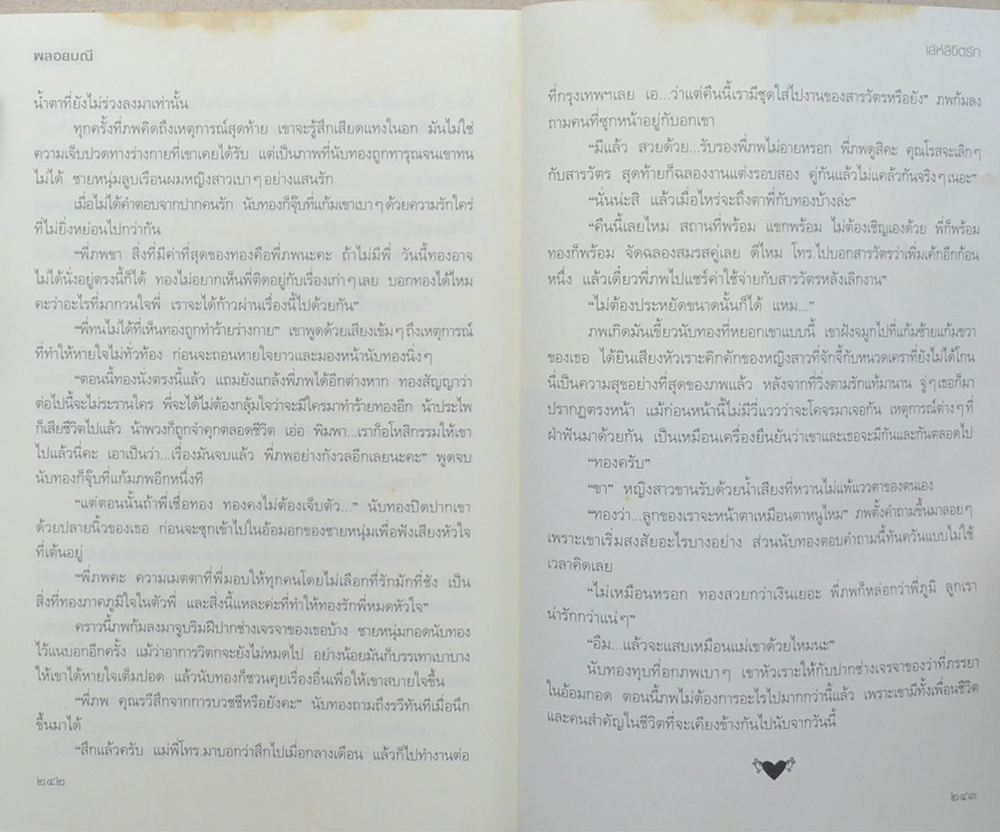 พลอยมณี
น้ำตาที่ยังไม่ร่วงลงมาเท่านั้น
ทุกครั้งที่ภพคิดถึงเหตุการณ์สุดท้าย เขาจะรู้สึกเสียดแทงในอก มันไม่ใช่
ความเจ็บปวดทางร่างกายที่เขาเคยได้รับ แต่เป็นภาพที่นับทองถูกทารุณจนเขาทน
ไม่ได้ ชายหนุ่มลูบเรือนผมหญิงสาวเบาๆ อย่างแสนรัก
เมื่อไม่ได้คำตอบจากปากคนรัก นับทองก็จุ๊บที่แก้มเขาเบาๆ ด้วยความรักใคร่
ที่ไม่ยิ่งหย่อนไปกว่ากัน
“พี่ภพขา สิ่งที่มีค่าที่สุดของทองคือพี่ภพนะคะ ถ้าไม่มีพี่ วันนี้ทองอาจ
ไม่ได้นั่งอยู่ตรงนี้ก็ได้ ทองไม่อยากเห็นพี่ติดอยู่กับเรื่องเก่าๆ เลย บอกทองได้ไหม
คะว่าอะไรที่มากวนใจพี่ เราจะได้ก้าวผ่านเรื่องนี้ไปด้วยกัน”
“พี่ทนไม่ได้ที่เห็นทองถูกทำร้ายร่างกาย” เขาพูดด้วยเสียงเข้มๆ ถึงเหตุการณ์
ที่ทำให้หายใจไม่ทั่วท้อง ก่อนจะถอนหายใจยาวและมองหน้านับทองนิ่งๆ
“ตอนนี้ทองนั่งตรงนี้แล้ว แถมยังแกล้งพี่ภพได้อีกต่างหาก ทองสัญญาว่า
ต่อไปนี้จะไม่ระรานใคร พี่จะได้ไม่ต้องกลุ้มใจว่าจะมีใครมาทำร้ายทองอีก น้าประไพ
ก็เสียชีวิตไปแล้ว น้าพวงก็ถูกจำคุกตลอดชีวิต เอ่อ พิมพา...เราก็อโหสิกรรมให้เขา
ไปแล้วนี่คะ เอาเป็นว่า...เรื่องมันจบแล้ว พี่ภพอย่ากังวลอีกเลยนะคะ” พูดจบ
นับทองก็จุ๊บที่แก้มภพอีกหนึ่งที
“แต่ตอนนั้นถ้าพี่เชื่อทอง ทองคงไม่ต้องเจ็บตัว...” นับทองปิดปากเขา
ด้วยปลายนิ้วของเธอ ก่อนจะซุกเข้าไปในอ้อมอกของชายหนุ่มเพื่อฟังเสียงหัวใจ
ที่เต้นอยู่
“พี่ภพคะ ความเมตตาที่พี่มอบให้ทุกคนโดยไม่เลือกที่รักมักที่ชัง เป็น
สิ่งที่ทองภาคภูมิใจในตัวพี่ และสิ่งนี้แหละค่ะที่ทำให้ทองรักพี่หมดหัวใจ”
คราวนี้ภพก้มลงมาจูบริมฝีปากช่างเจรจาของเธอบ้าง ชายหนุ่มกอดนับทอง
ไว้แนบอกอีกครั้ง แม้ว่าอาการวิตกจะยังไม่หมดไป อย่างน้อยมันก็บรรเทาเบาบาง
ให้เขาได้หายใจเต็มปอด แล้วนับทองก็ชวนคุยเรื่องอื่นเพื่อให้เขาสบายใจขึ้น
“พี่ภพ คุณรวีสึกจากการบวชชีหรือยังคะ” นับทองถามถึงรวีทันทีเมื่อนึก
ขึ้นมาได้
“สึกแล้วครับ แม่พี่โทร.มาบอกว่าสึกไปเมื่อกลางเดือน แล้วก็ไปทำงานต่อ
๒๔๒
เสห์ลิขิตรัก
ที่กรุงเทพฯเลย เอ...ว่าแต่คืนนี้เรามีชุดใส่ไปงานของสารวัตรหรือยัง” ภพก้มลง
ถามคนที่ซุกหน้าอยู่กับอกเขา
“มีแล้ว สวยด้วย...รับรองพี่ภพไม่อายหรอก พี่ภพดูสิคะ คุณโรสจะเลิกๆ
กับสารวัตร สุดท้ายก็ฉลองงานแต่งรอบสอง คู่กันแล้วไม่แคล้วกันจริงๆ เนอะ”
“นั่นน่ะสิ แล้วเมื่อไหร่จะถึงตาพี่กับทองบ้างล่ะ”
“คืนนี้เลยไหม สถานที่พร้อม แขกพร้อม ไม่ต้องเชิญเองด้วย พี่ก็พร้อม
ทองก็พร้อม จัดฉลองสมรสคู่เลย ดีไหม โทร.ไปบอกสารวัตรว่าเพิ่มเค้กอีกก้อน
หนึ่ง แล้วเดี๋ยวพี่ภพไปแชร์ค่าใช้จ่ายกับสารวัตรหลังเลิกงาน”
“ไม่ต้องประหยัดขนาดนั้นก็ได้ แหม...”
ภพเกิดมันเขี้ยวนับทองที่หยอกเขาแบบนี้ เขาฝังจมูกไปที่แก้มซ้ายแก้มขวา
ของเธอ ได้ยินเสียงหัวเราะคิกคักของหญิงสาวที่จักจี้กับหนวดเคราที่ยังไม่ได้โกน
นี่เป็นความสุขอย่างที่สุดของภพแล้ว หลังจากที่วิ่งตามรักแท้มานาน จู่ๆ เธอก็มา
ปรากฏตรงหน้า แม้ก่อนหน้านี้ไม่มีวี่แววว่าจะโคจรมาเจอกัน เหตุการณ์ต่างๆ ที่
ฝ่าฟันมาด้วยกัน เป็นเหมือนเครื่องยืนยันว่าเขาและเธอจะมีกันและกันตลอดไป
“ทองครับ”
“ขา” หญิงสาวขานรับด้วยน้ำเสียงที่หวานไม่แพ้แววตาของตนเอง
“ทองว่า...ลูกของเราจะหน้าตาเหมือนตาหนูไหม” ภพตั้งคำถามขึ้นมาลอยๆ
เพราะเขาเริ่มสงสัยอะไรบางอย่าง ส่วนนับทองตอบคำถามนี้ทันควันแบบไม่ใช้
เวลาคิดเลย
“ไม่เหมือนหรอก ทองสวยกว่าเงินเยอะ พี่ภพก็หล่อกว่าพี่ภูมิ ลูกเรา
น่ารักกว่าแน่ๆ”
“อืม...แล้วจะแสบเหมือนแม่เขาด้วยไหมนะ”
นับทองทุบที่อกภพเบาๆ เขาหัวเราะให้กับปากช่างเจรจาของว่าที่ภรรยา
ในอ้อมกอด ตอนนี้ภพไม่ต้องการอะไรไปมากกว่านี้แล้ว เพราะเขามีทั้งเพื่อนชีวิต
และคนสำคัญในชีวิตที่จะเคียงข้างกันไปนับจากวันนี้
๒๔๓